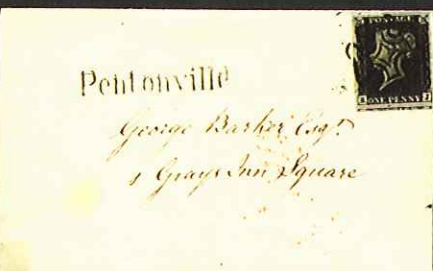 POSTAGE
ONE PENNY
Pentonville
George Barker Esqr.
1 Grays Inn Square